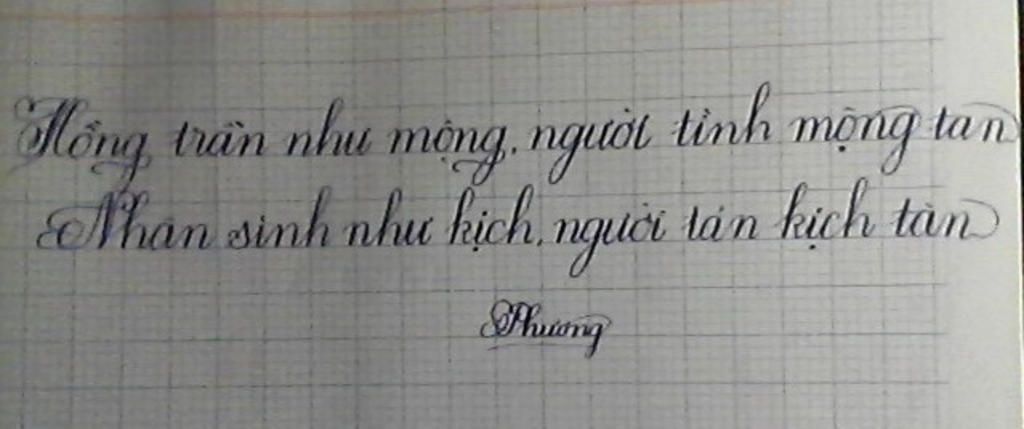 Hồng trần như mộng, người tỉnh mộng tan
Nhân sinh như kịch, người tán kịch tàn
Phương